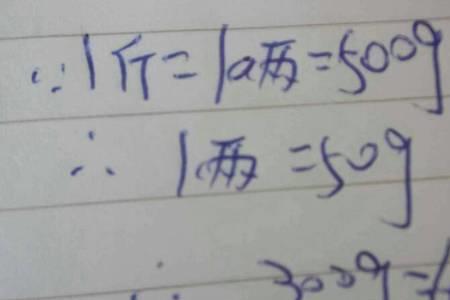 ∵1斤=10两=500g
∴ 1两=50g
∴ 300g=